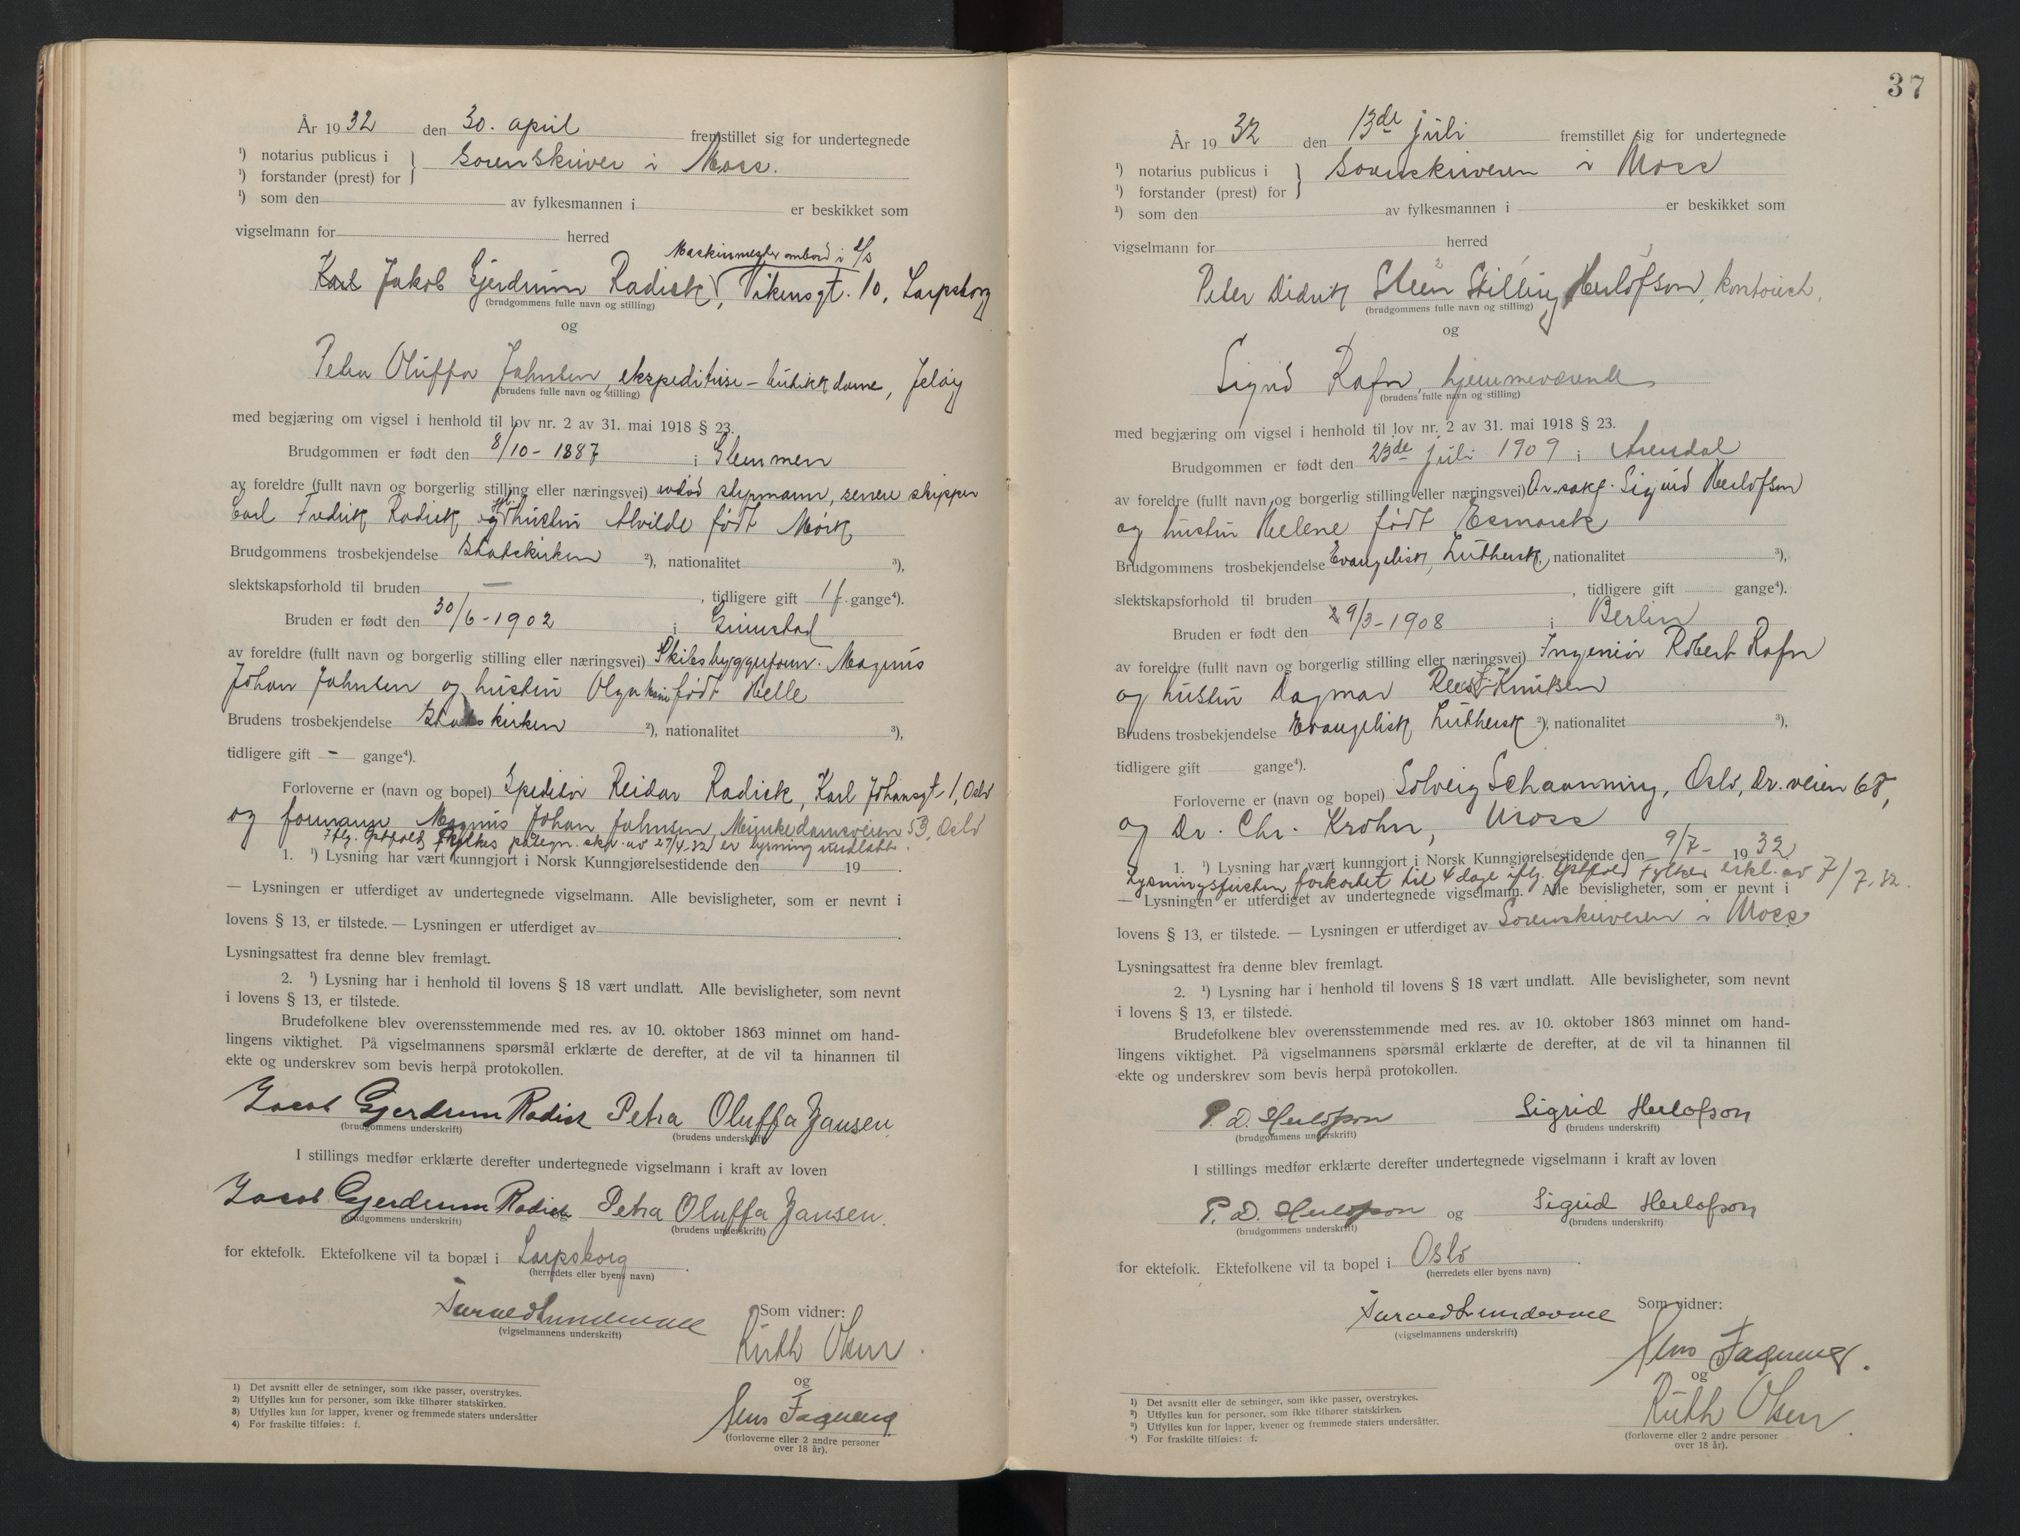 År 1932 den 30. april fremstillet sig for undertegnede
¹) notarius publicus i } Sorenskriver i Moss.
¹) forstander (prest) for
¹) som den av fylkesmannen i er beskikket som
vigselmann for herred
Maskinmester ombord i s/s
Karl Jakob Gjerdrum Radick, Vikensgt. 10, Sarpsborg
(brudgommens fulle navn og stilling)
og
Petra Oluffa Jahnsen, ekspeditrise - butikkdame, Jeløy
(brudens fulle navn og stilling)
med begjæring om vigsel i henhold til lov nr. 2 av 31. mai 1918 § 23.
Brudgommen er født den 8/10 - 1887 i Glemmen
av foreldre (fullt navn og borgerlig stilling eller næringsvei) styrmann, senere skipper
Carl Fredrik Radick og hustru Alvilde født Mørk
Brudgommens trosbekjendelse Statskirken ²), nationalitet ³),
slektskapsforhold til bruden — , tidligere gift 1 f. gange⁴).
Bruden er født den 30/6 - 1902 i Grimstad
av foreldre (fullt navn og borgerlig stilling eller næringsvei) Skibsbyggerform. Magnus
Johan Jahnsen og hustru Olga født Helle
Brudens trosbekjendelse Statskirken ²), nationalitet ³),
tidligere gift - gange⁴).
Forloverne er (navn og bopel) Speditør Reidar Radick, Karl Johansgt. 1, Oslo
og formann Magnus Johan Jahnsen, Munkedamsveien 53, Oslo
Iflg. Østfold Fylkes påtegn. skr. av 27/4-32 er lysning undlatt.
1. ¹) Lysning har vært kunngjort i Norsk Kunngjørelsestidende den 19
— Lysningen er utferdiget av undertegnede vigselmann. Alle bevisligheter, som er nevnt i
lovens § 13, er tilstede. — Lysningen er utferdiget av .
Lysningsattest fra denne blev fremlagt.
2. ¹) Lysning har i henhold til lovens § 18 vært undlatt. Alle bevisligheter, som nevnt
i lovens § 13, er tilstede.
Brudefolkene blev overensstemmende med res. av 10. oktober 1863 minnet om hand-
lingens viktighet. På vigselmannens spørsmål erklærte de derefter, at de vil ta hinannen til
ekte og underskrev som bevis herpå protokollen.
Jacob Gjerdrum Radick Petra Oluffa Jansen
(brudgommens underskrift) (brudens underskrift)
I stillings medfør erklærte derefter undertegnede vigselmann i kraft av loven
Jacob Gjerdrum Radick og Petra Oluffa Jansen.
(brudgommens underskrift) (brudens underskrift)
for ektefolk. Ektefolkene vil ta bopæl i Sarpsborg .
(herredets eller byens navn)
Som vidner:
Tarald Lundevall
(vigselmannens underskrift)
Ruth Olsen.
og
Jens Fagereng
(forloverne eller 2 andre personer
over 18 år).
1) Det avsnitt eller de setninger, som ikke passer, overstrykes.
2) Utfylles kun for personer, som ikke tilhører statskirken.
3) Utfylles kun for lapper, kvener og fremmede staters undersåtter
4) For fraskilte tilføies: f.
37
År 1932 den 13de juli fremstillet sig for undertegnede
¹) notarius publicus i } Sorenskriveren i Moss
¹) forstander (prest) for
¹) som den av fylkesmannen i er beskikket som
vigselmann for herred
Peter Didrik Steen Stilling Herlofson, kontorist.
(brudgommens fulle navn og stilling)
og
Sigrid Rafn, hjemmeværende
(brudens fulle navn og stilling)
med begjæring om vigsel i henhold til lov nr. 2 av 31. mai 1918 § 23.
Brudgommen er født den 23de juli 1909 i Arendal
av foreldre (fullt navn og borgerlig stilling eller næringsvei) O.r.sakf. Sigurd Herlofson
og hustru Helene født Esmarck
Brudgommens trosbekjendelse Evangelisk, Luthersk, nationalitet ³),
slektskapsforhold til bruden , tidligere gift gange⁴).
Bruden er født den 29/3-1908 i Berlin
av foreldre (fullt navn og borgerlig stilling eller næringsvei) Ingeniør Robert Rafn
og hustru Dagmar f. Knutsen
Brudens trosbekjendelse Evangelisk Luthersk ²), nationalitet ³),
tidligere gift gange⁴).
Forloverne er (navn og bopel) Solveig Schaanning, Oslo, Dr. veien 68,
og Dr. Chr. Krohn, Moss
1. ¹) Lysning har vært kunngjort i Norsk Kunngjørelsestidende den 9/7 - 1932
Lysningsfristen forkortet til 4 dage iflg. Østfold Fylkes erkl. av 7/7.32.
— Lysningen er utferdiget av undertegnede vigselmann. Alle bevisligheter, som er nevnt i
lovens § 13, er tilstede. — Lysningen er utferdiget av Sorenskriveren i Moss
Lysningsattest fra denne blev fremlagt.
2. ¹) Lysning har i henhold til lovens § 18 vært undlatt. Alle bevisligheter, som nevnt
i lovens § 13, er tilstede.
Brudefolkene blev overensstemmende med res. av 10. oktober 1863 minnet om hand-
lingens viktighet. På vigselmannens spørsmål erklærte de derefter, at de vil ta hinannen til
ekte og underskrev som bevis herpå protokollen.
P. D. Herlofson Sigrid Herlofson
(brudgommens underskrift) (brudens underskrift)
I stillings medfør erklærte derefter undertegnede vigselmann i kraft av loven
P. D. Herlofson og Sigrid Herlofson
(brudgommens underskrift) (brudens underskrift)
for ektefolk. Ektefolkene vil ta bopel i Oslo .
(herredets eller byens navn)
Som vidner:
Tarald Lundevall
(vigselmannens underskrift)
Jens Fagereng.
og
Ruth Olsen.
(forloverne eller 2 andre personer
over 18 år).
1) Det avsnitt eller de setninger, som ikke passer, overstrykes.
2) Utfylles kun for personer, som ikke tilhører statskirken.
3) Utfylles kun for lapper, kvener og fremmede staters undersåtter.
4) For fraskilte tilføies: f.